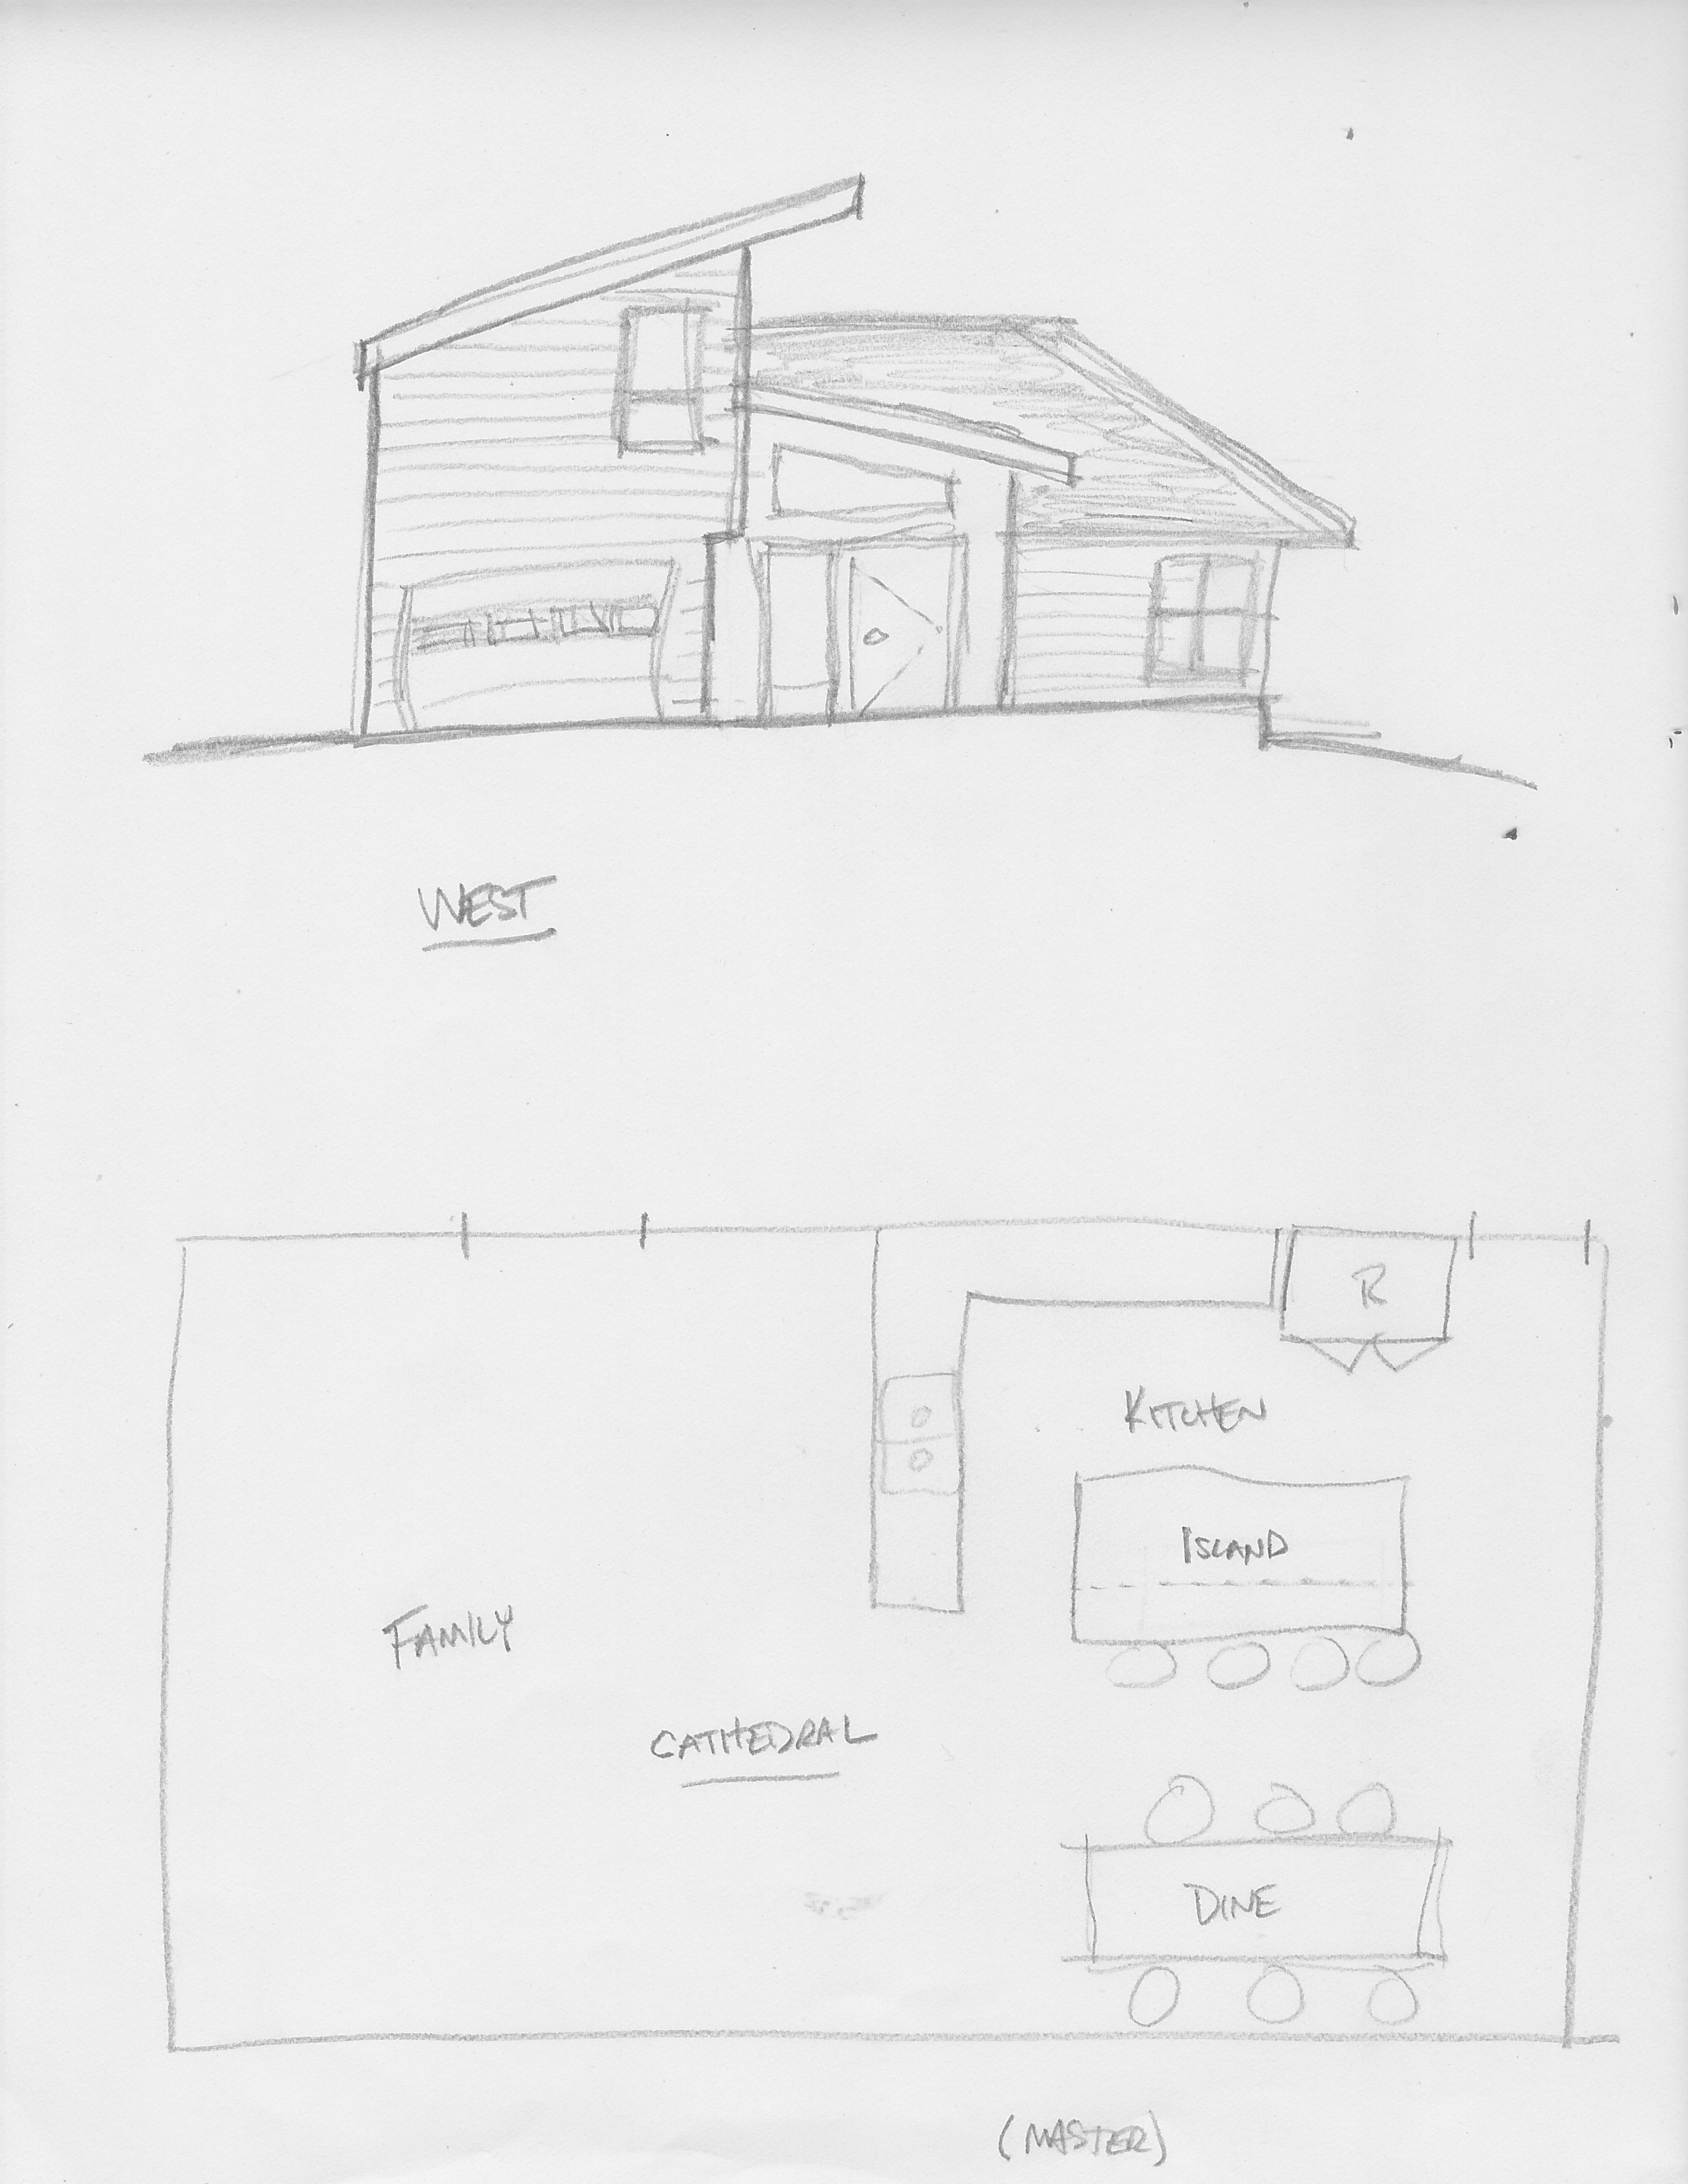 WEST
R
KITCHEN
ISLAND
FAMILY
CATHEDRAL
DINE
(MASTER)